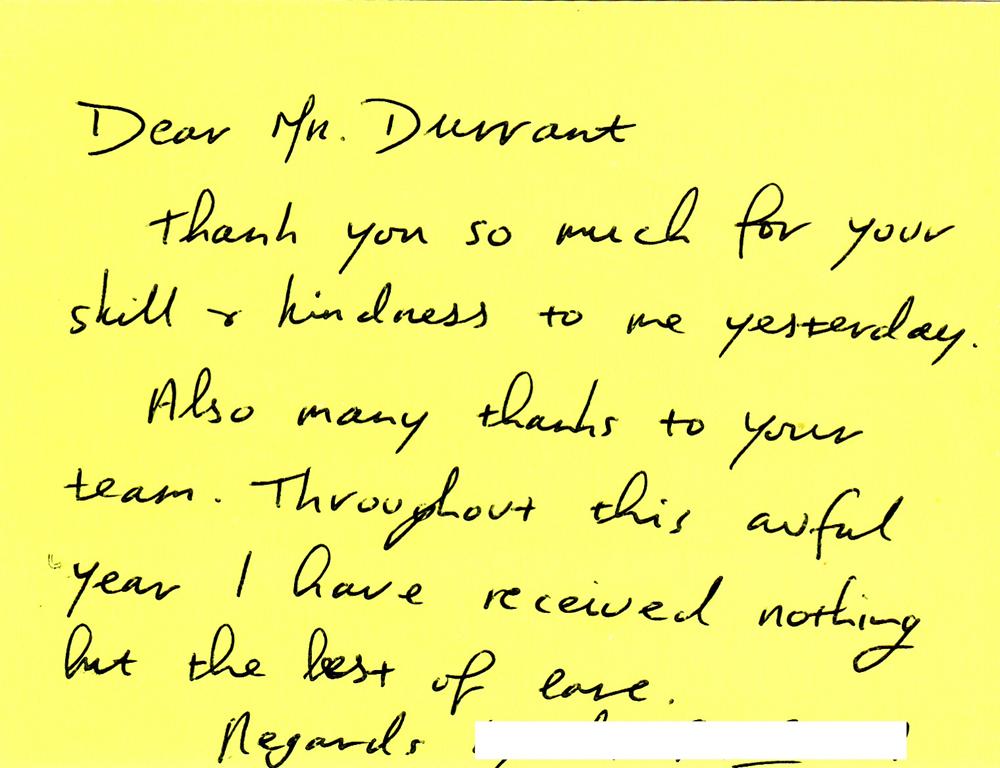 Dear Mr. Durrant
Thank you so much for your
skill & kindness to me yesterday.
Also many thanks to your
team. Throughout this awful
year I have received nothing
but the best of care.
Regards